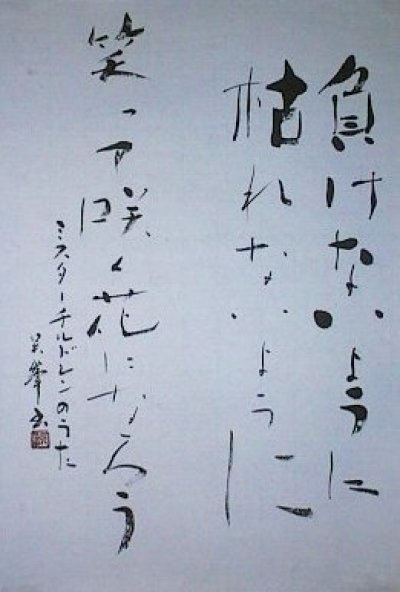 負けないように
枯れないように
笑って咲く花になろう
ミスターチルドレンのうた